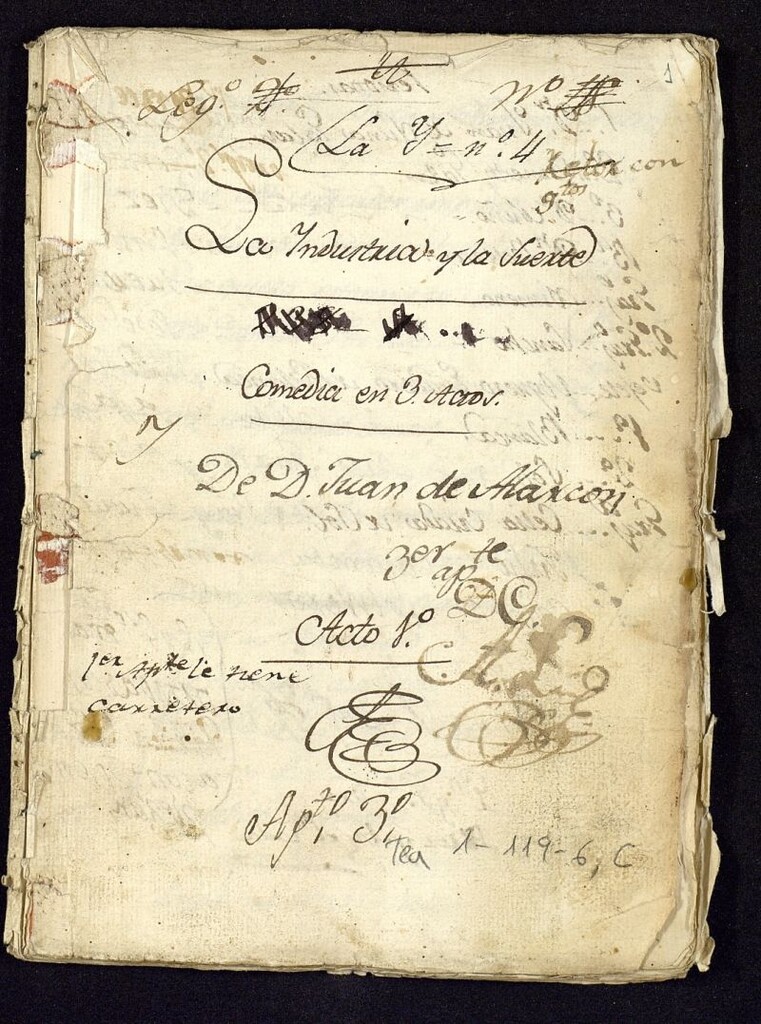 1
Leg.º nº
La Y= nº. 4
con
gtos
La Industria y la Suerte
Comedia en 3. Actos.
De D. Juan de Alarcon
3er te
ap
DC.
Acto 1.º
1er Apte le tiene
carretero
Ap,to 3,º
Tea 1-119-6, C